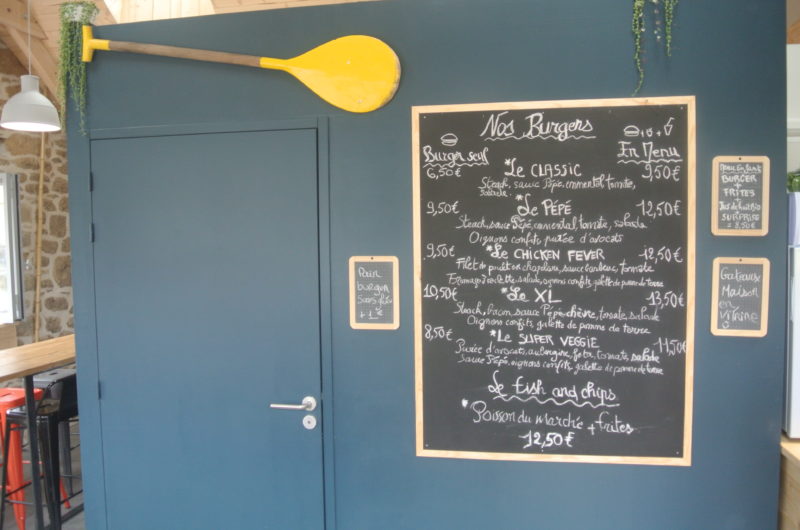 Nos Burgers
Burger seul
En Menu
6,50€ *Le CLASSIC 9,50€
Steack, sauce Pépé, emmental, tomate,
salade.
9,50€ *Le PÉPÉ 12,50€
Steack, sauce Pépé, emmental, tomate, salade
Oignons confits, purée d'avocats
9,50€ *Le CHICKEN FEVER 12,50€
Filet de poulet en chapelure, sauce barbecue, tomate
Fromage à raclette, salade, oignons confits, galette de pomme de terre
10,50€ *Le XL 13,50€
Steack, bacon, sauce Pépé, chèvre, tomate, salade
Oignons confits, galette de pomme de terre
8,50€ *Le SUPER VEGGIE 11,50€
Purée d'avocats, aubergine, feta, tomate, salade
Sauce Pépé, oignons confits, galette de pomme de terre
Le Fish and chips
*Poisson du marché + frites
12,50€
Pain
burger
sans
+1€
Menu Enfant
BURGER
+
FRITES
Jus de fruit Bio
SURPRISE
= 8,50€
Gateaux
Maison
en
vitrine